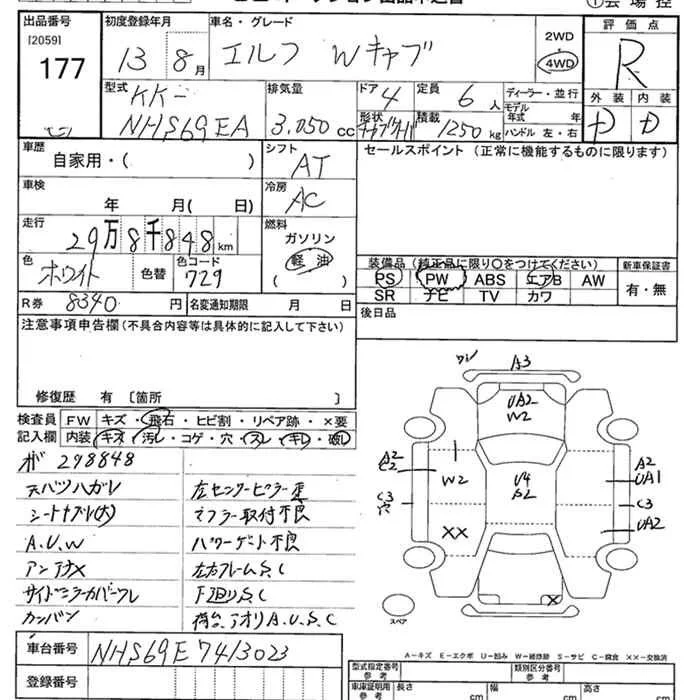 出品番号 初度登録年月 車名・グレード 2WD 評価点
[2059] 177 13 8月 エルフ Wキャブ 4WD R
型式 排気量 ドア 定員 ディーラー・並行 外装 内装
KK- 4 6人 モデル年式 年
NHS69EA 3,050cc 形状 積載 1250kg ハンドル 左・右 D D
車歴 シフト セールスポイント (正常に機能するものに限ります)
自家用・( ) AT
車検 冷房
年 月( 日) AC
走行 燃料
29万8千848km ガソリン
色 色コード 軽油 装備品(純正品に限り○をつけてください) 新車保証書
ホワイト 色替 729 ( ) PS PW ABS エアB AW 有・無
R券 8340円 名変通知期限 月 日 SR ナビ TV カワ
注意事項申告欄(不具合内容等は具体的に記入して下さい) 後日品
修復歴 有 [箇所 ]
検査員 FW キズ・飛石・ヒビ割・リペア跡・×要
記入欄 内装 キズ・汚レ・コゲ・穴・スレ・キレ・破レ
298848
スパツハガレ 左センターピラー歪
シートナオレ(大) マフラー取付不良
A.U.W パワーゲート不良
アンテナX 左右フレームS.C
サイドミラーカバーワレ 下廻りS.C
カンバン 荷台アオリA.U.S.C
車台番号 NHS69E 7413023
登録番号
A3
UA2
W2
A2
W2
A2
UA1
C3
C3
UA2
XX
X
スペア
A-キズ E-エクボ U-凹み W-補修跡 S-サビ C-腐食 ××-交換済
型式指定番号 参考 類別区分番号 参考
車庫証明用 参考 長さ cm 幅 cm 高さ cm